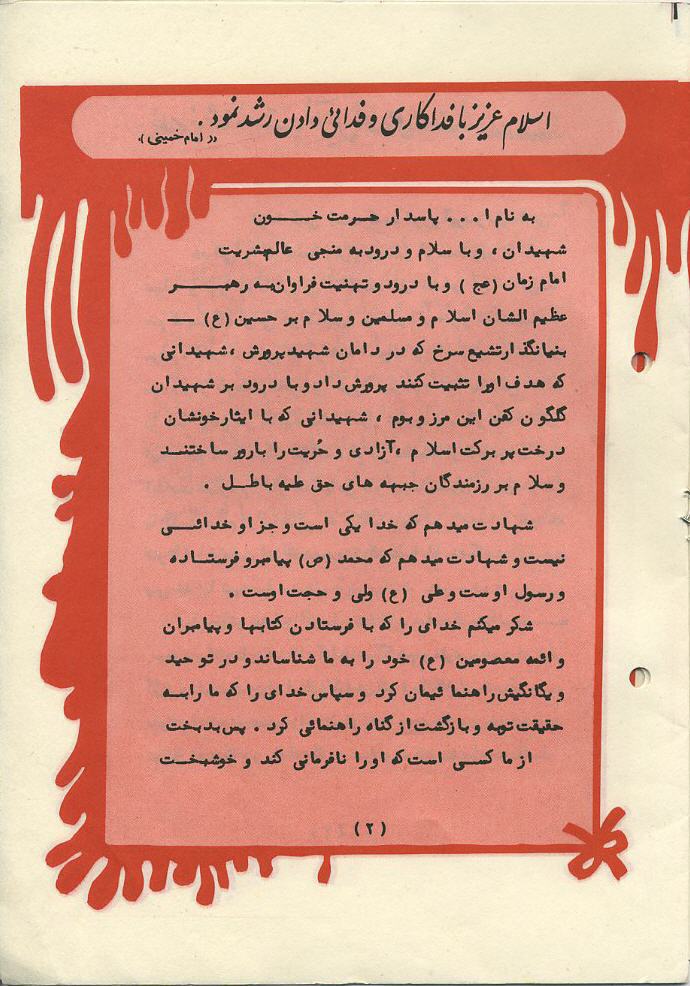 اسلام عزیز با فداکاری و فدائی دادن رشد نمود .
(( امام خمینی ))
به نام ا... پاسدار حرمت خون
شهیدان ، و با سلام و درود به منجی عالم بشریت
امام زمان (عج ) و با درود و تهنیت فراوان به رهبر
عظیم الشان اسلام و مسلمین و سلام بر حسین (ع) —
بنیانگذار تشیع سرخ که در دامان شهید پرورش ، شهیدانی
که هدف او را تثبیت کنند پرورش داد و با درود بر شهیدان
گلگون کفن این مرز و بوم ، شهیدانی که با ایثار خونشان
درخت پر برکت اسلام ،آزادی و حُریت را بارور ساختند
و سلام بر رزمندگان جبهه های حق علیه باطل .
شهادت میدهم که خدا یکی است و جز او خدائی
نیست و شهادت میدهم که محمد (ص) پیامبر و فرستاده
و رسول اوست و علی (ع) ولی و حجت اوست .
شکر میکنم خدای را که با فرستادن کتابها و پیامبران
و ائمه معصومین (ع) خود را به ما شناساند و در توحید
و یگانگیش راهنمائیمان کرد و سپاس خدای را که ما را به
حقیقت توبه و بازگشت از گناه راهنمائی کرد . پس بدبخت
از ما کسی است که او را نافرمانی کند و خوشبخت
(۲)